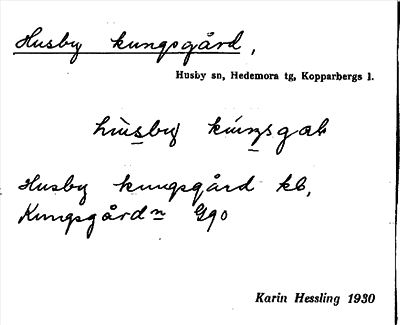 Husby kungsgård,
Husby sn, Hedemora tg, Kopparbergs l.
hùsby kúŋsgaḷ
Husby kungsgård kb,
Kungsgårdⁿ G90
Karin Hessling 1930